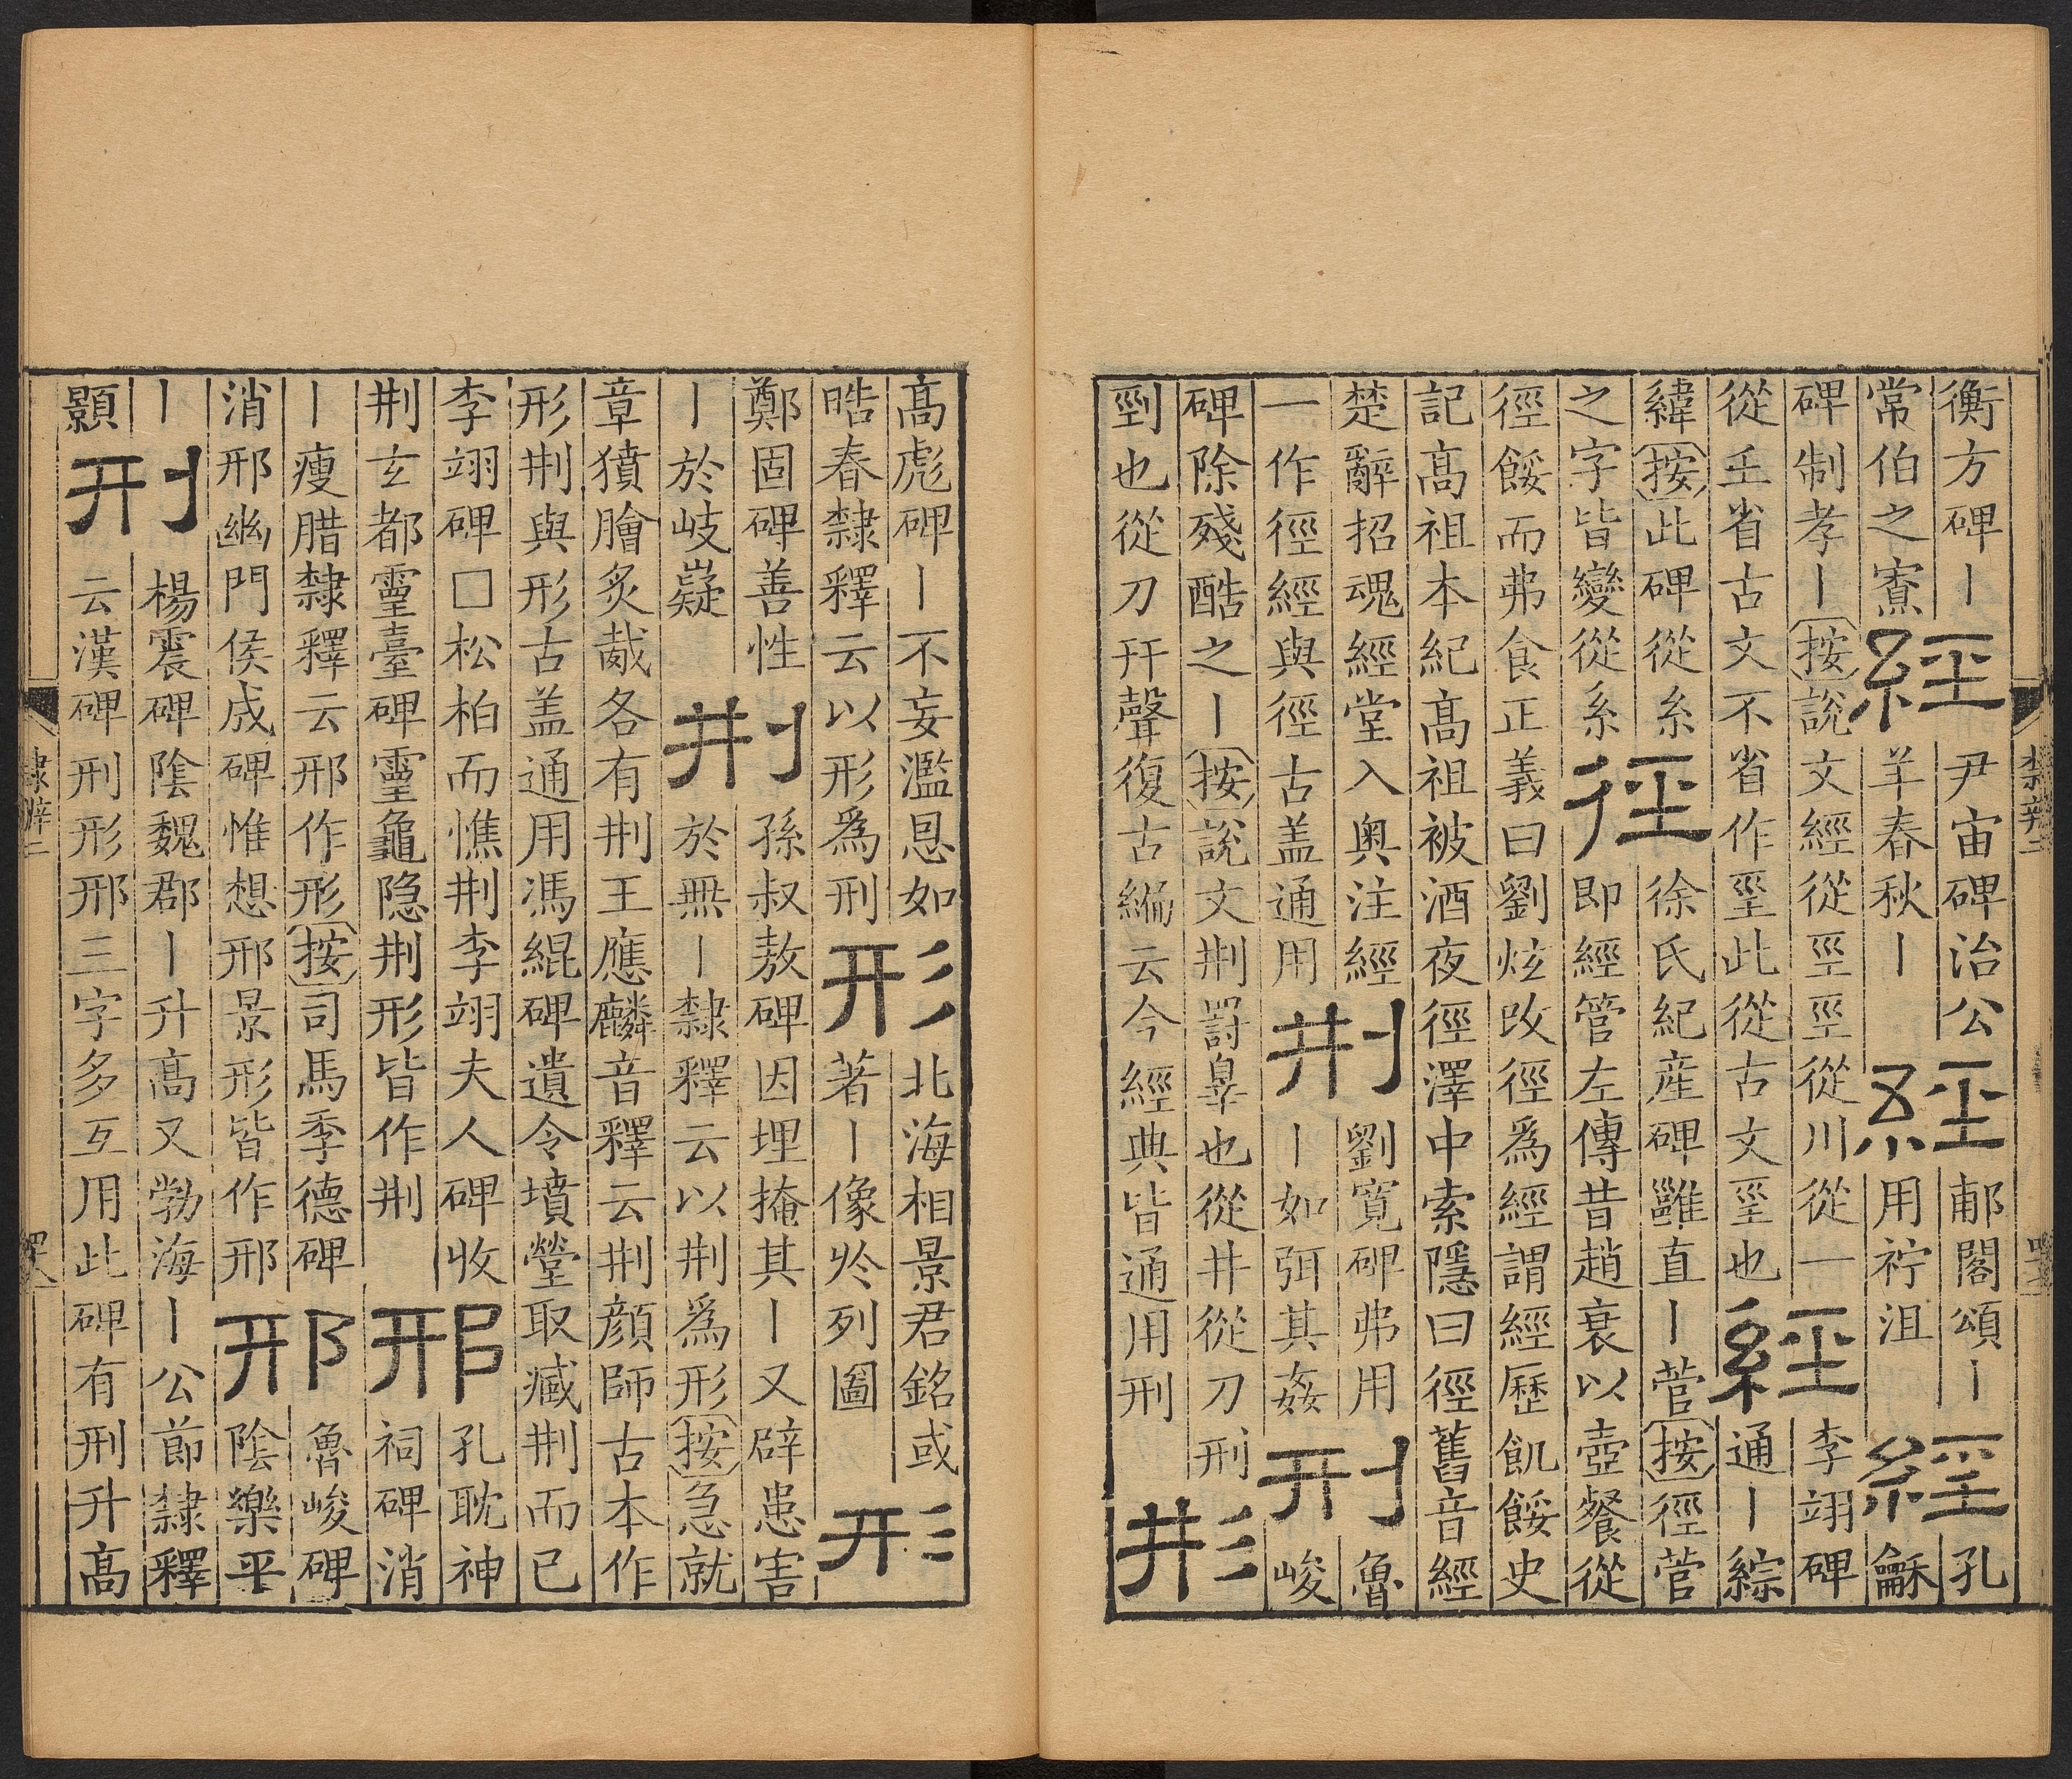 衡方碑丨
常伯之寮
經
尹宙碑治公
羊春秋丨
經
郙閣頌丨
用衧沮
經
孔
龢
碑制孝丨按說文經從巠巠從川從一
從𡈼省古文不省作巠此從古文巠也
經
李翊碑
通丨綜
緯按此碑從糸
之字皆變從系
徑
徐氏紀産碑雖直丨菅按徑菅
即經管左傳昔趙衰以壺餐從
徑餒而弗食正義曰劉炫改徑爲經謂經歷飢餒史
記高祖本紀高祖被酒夜徑澤中索隱曰徑舊音經
楚辭招魂經堂入奥注經
一作徑經與徑古盖通用
荆
劉寬碑弗用
丨如弭其姦
刑
魯
峻
碑除殘酷之丨按說文荆罸辠也從井從刀刑
剄也從刀幵聲復古編云今經典皆通用刑
形
高彪碑丨不妄濫恩如
晧春隸釋云以形爲刑
形
北海相景君銘或
著丨像於列圖
形
鄭固碑善性
丨於岐嶷
荆
孫叔敖碑因埋掩其丨又辟患害
於無丨隸釋云以荆爲形按急就
章獖膾炙胾各有荆王應麟音釋云荆顔師古本作
形荆與形古盖通用馮緄碑遺令墳塋取臧荆而已
李翊碑□松柏而憔荆李翊夫人碑收
荆玄都靈臺碑靈龜隐荆形皆作荆
邢
孔耽神
祠碑消
丨瘦腊隸釋云邢作形按司馬季德碑
消邢幽門侯成碑惟想邢景形皆作邢
邢
魯峻碑
陰樂平
丨
顥
刑
楊震碑陰魏郡丨升高又勃海丨公節隸釋
云漢碑刑形邢三字多互用此碑有刑升高
隸辨二